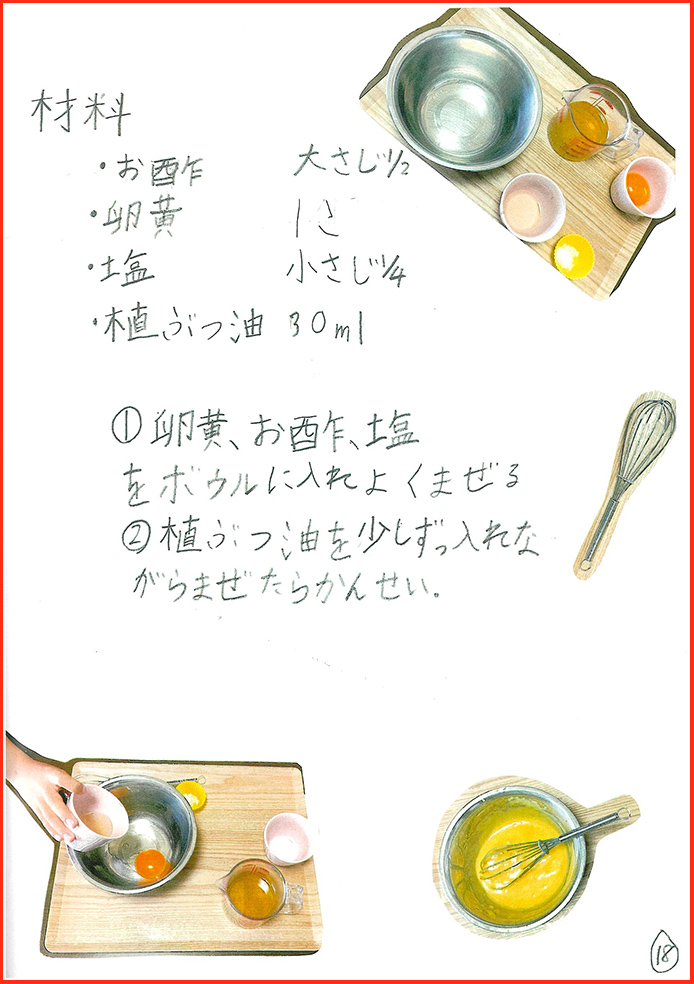 材料
・お酢 大さじ1/2
・卵黄 1こ
・塩 小さじ1/4
・植ぶつ油 30ml
①卵黄、お酢、塩
をボウルに入れよくまぜる
②植ぶつ油を少しずつ入れな
がらまぜたらかんせい。
18